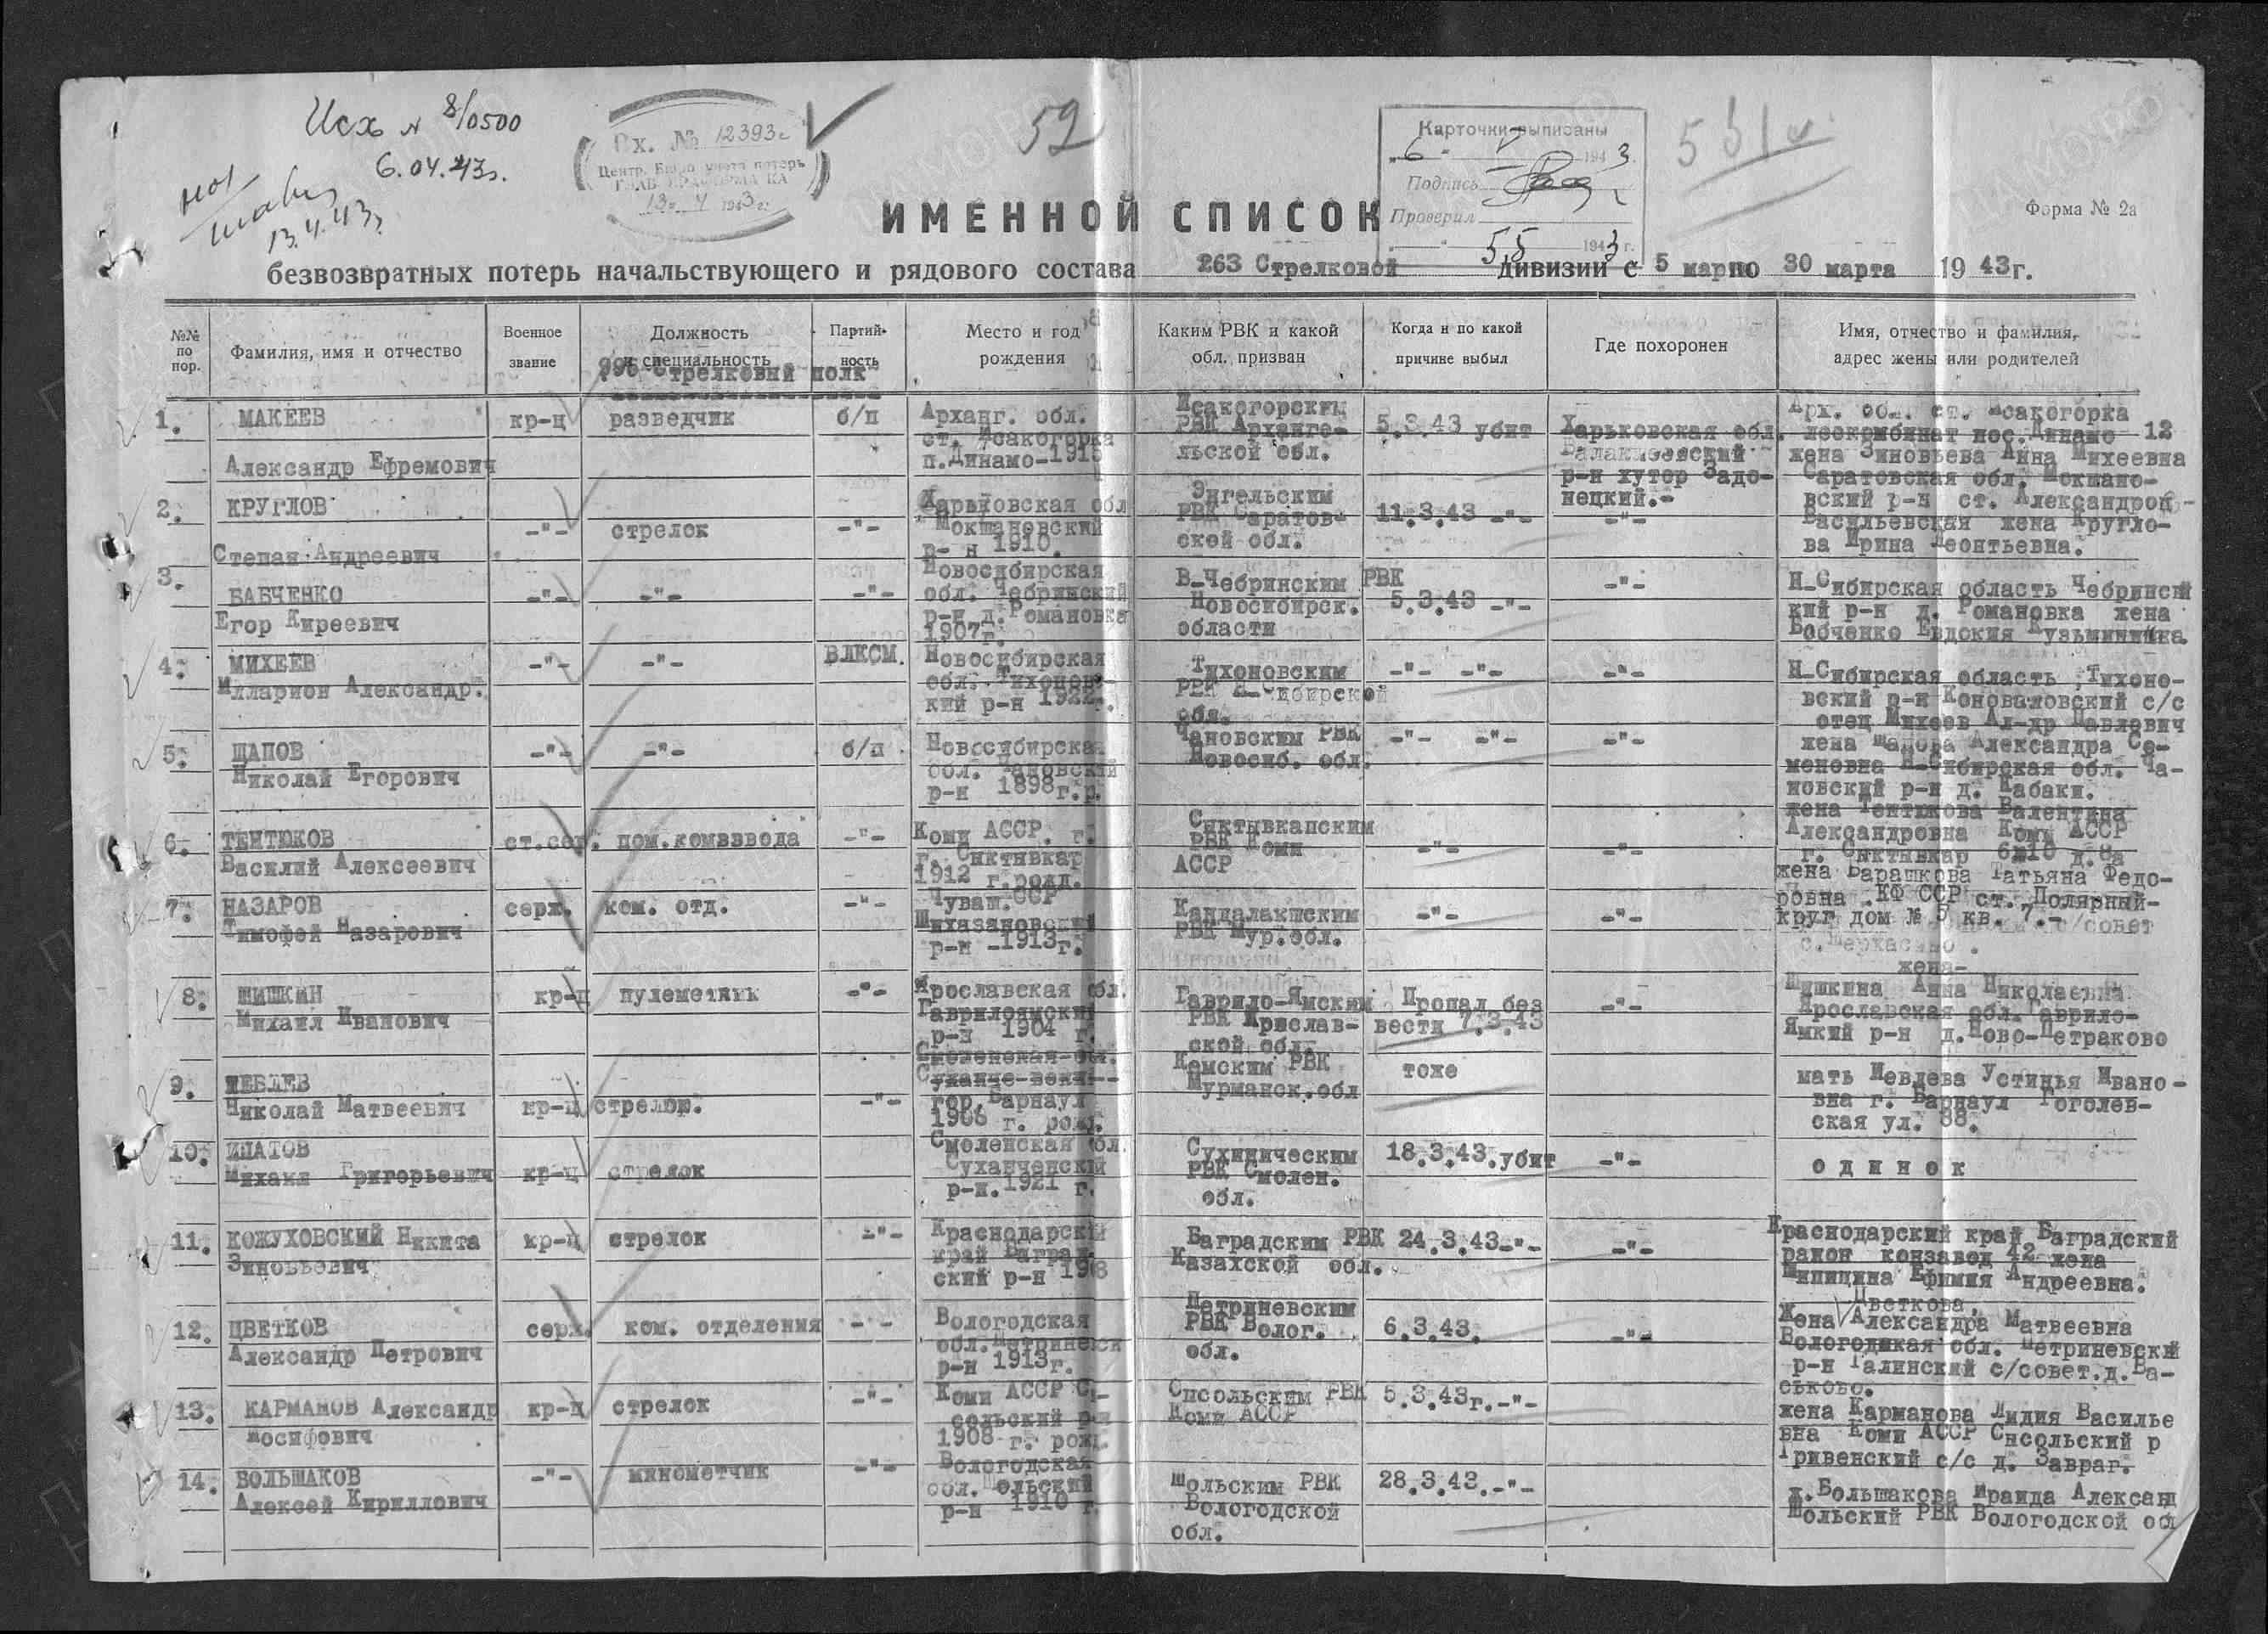 Исх № 8/0500
6.04.43г.
13.4.43г.
Вх. № 12393с
Центр. Бюро учета потерь
13 4 1943 г.
52
Карточки выписаны
"6" V 1943.
Подпись
Проверил
55 1943 г.
531
ИМЕННОЙ СПИСОК
Форма № 2а
безвозвратных потерь начальствующего и рядового состава 263 Стрелковой дивизии с 5 марпо 30 марта 1943г.
№№ по пор.
Фамилия, имя и отчество
Военное звание
Должность и специальность
Партийность
Место и год рождения
Каким РВК и какой обл. призван
Когда и по какой причине выбыл
Где похоронен
Имя, отчество и фамилия, адрес жены или родителей
995 Стрелковый полк
1. МАКЕЕВ
Александр Ефремович
кр-ц
разведчик
б/п
Арханг. обл.
ст. Исакогорка
п.Динамо-1915
Исакогорским
РВК Арханге-
льской обл.
5.3.43 убит
Харьковская обл.
Балаклеевский
р-н хутор Задо-
нецкий.-
Арх. обл. ст. Исакогорка
лескомбинат пос.Динамо 12
жена Зиновьева Анна Михеевна
2. КРУГЛОВ
Степан Андреевич
-"-
стрелок
-"-
Харьковская обл
Мокшановский
р- н 1910.
Энгельским
РВК Саратов-
ской обл.
11.3.43 -"-
-"-
Саратовская обл. Мокшано-
вский р-н ст. Александров-
Васильевская жена Кругло-
ва Ирина Леонтьевна.
3. БАБЧЕНКО
Егор Киреевич
-"-
-"-
-"-
Новосибирская
обл. Чебринский
р-н д. Романовка
1907г.
В-Чебринским РВК
Новосибирск.
области
5.3.43 -"-
-"-
Н-Сибирская область Чебринсй
кий р-н д. Романовка жена
Бабченко Евдокия Кузьминична
4. МИХЕЕВ
Илларион Александр.
-"-
-"-
ВЛКСМ.
Новосибирская
обл. Тихонов-
кий р-н 1922г.
Тихоновским
РВК Н-Сибирской
обл.
-"- -"-
-"-
Н-Сибирская область ,Тихоно-
вский р-н Коноваловский с/с
отец Михеев Ал-др Павлович
5. ШАПОВ
Николай Егорович
-"-
-"-
б/п
Новосибирская
обл. Чановский
р-н 1898г.р.
Чановским РВК
Новосиб. обл.
-"- -"-
-"-
жена Шапова Александра Се-
меновна Н-Сибирская обл. Ча-
новский р-н д. Кабаки.
6. ТЕНТЮКОВ
Василий Алексеевич
ст.сер.
пом.комвзвода
-"-
Коми АССР. г.
г. Сиктивкар
1912 г.рожд.
Сиктивкапским
РВК Коми
АССР
-"-
-"-
жена Тентюкова Валентина
Александровна Коми АССР
г. Сиктивкар д.8а
7. НАЗАРОВ
Тимофей Назарович
серж.
ком. отд.
-"-
Чуваш.ССР
Шихазановский
р-н -1913г.
Кандалакшским
РВК Мур.обл.
-"-
-"-
жена Барашкова Татьяна Федо-
ровна .КФ ССР ст. Полярний-
круг дом № 5 кв. 7.-
с/совет
8. ШИШКИН
Михаил Иванович
кр-ц
пулеметчик
-"-
Ярославская обл.
Гаврилоямский
р-н 1904 г.
Гаврило-Ямским
РВК Ярослав-
ской обл.
Пропал без
вести 7.3.43
-"-
жена-
Шишкина Анна Николаевна
Ярославская обл. Гаврило-
Ямкий р-н д.Ново-Петраково
9. ШЕВЛЕВ
Николай Матвеевич
кр-ц
стрелок.
-"-
Смоленская обл.
гор. Барнаул
1906 г. рожд.
Кемским РВК
Мурманск.обл
тоже
мать Шевлева Устинья Ивано-
вна г. Барнаул Гоголев-
ская ул. 88.
10. ИПАТОВ
Михаил Григорьевич
кр-ц
стрелок
Смоленская обл.
Суханченский
р-н. 1921 г.
Сухиническим
РВК Смолен.
обл.
18.3.43.убит
-"-
о д и н о к
11. КОЖУХОВСКИЙ Никита
Зиновьевич
кр-ц
стрелок
-"-
Краснодарский
край Баград-
ский р-н
Баградским РВК
Казахской обл.
24.3.43-"-
-"-
Краснодарский край Баградский
район конзавод 42 жена
Шипицина Ефимия Андреевна.
12. ЦВЕТКОВ
Александр Петрович
серж.
ком. отделения
-"-
Вологодская
обл.Петриневся
р-н 1913г.
Петриневским
РВК Волог.
обл.
6.3.43.
-"-
Цветкова,
Жена Александра Матвеевна
Вологодцкая обл. Петриневскй
р-н Галинский с/совет.д.Ва-
ськово.
13. КАРМАНОВ Александр
Иосифович
кр-ц
стрелок
-"-
Коми АССР С-
сольский р-н
1908 г. рожд.
Сисольским РВК
Коми АССР
5.3.43г.-"-
жена Карманова Лидия Василье
вна Коми АССР Сисольский р
Гривенский с/с д. Завраг.
14. БОЛЬШАКОВ
Алексей Кириллович
-"-
минометчик
-"-
Вологодская
обл. Шольский
р-н 1910 г.
Шольским РВК
Вологодской
обл.
28.3.43.-"-
ж.Большакова Ираида Алексан
Шольский РВК Вологодской обл